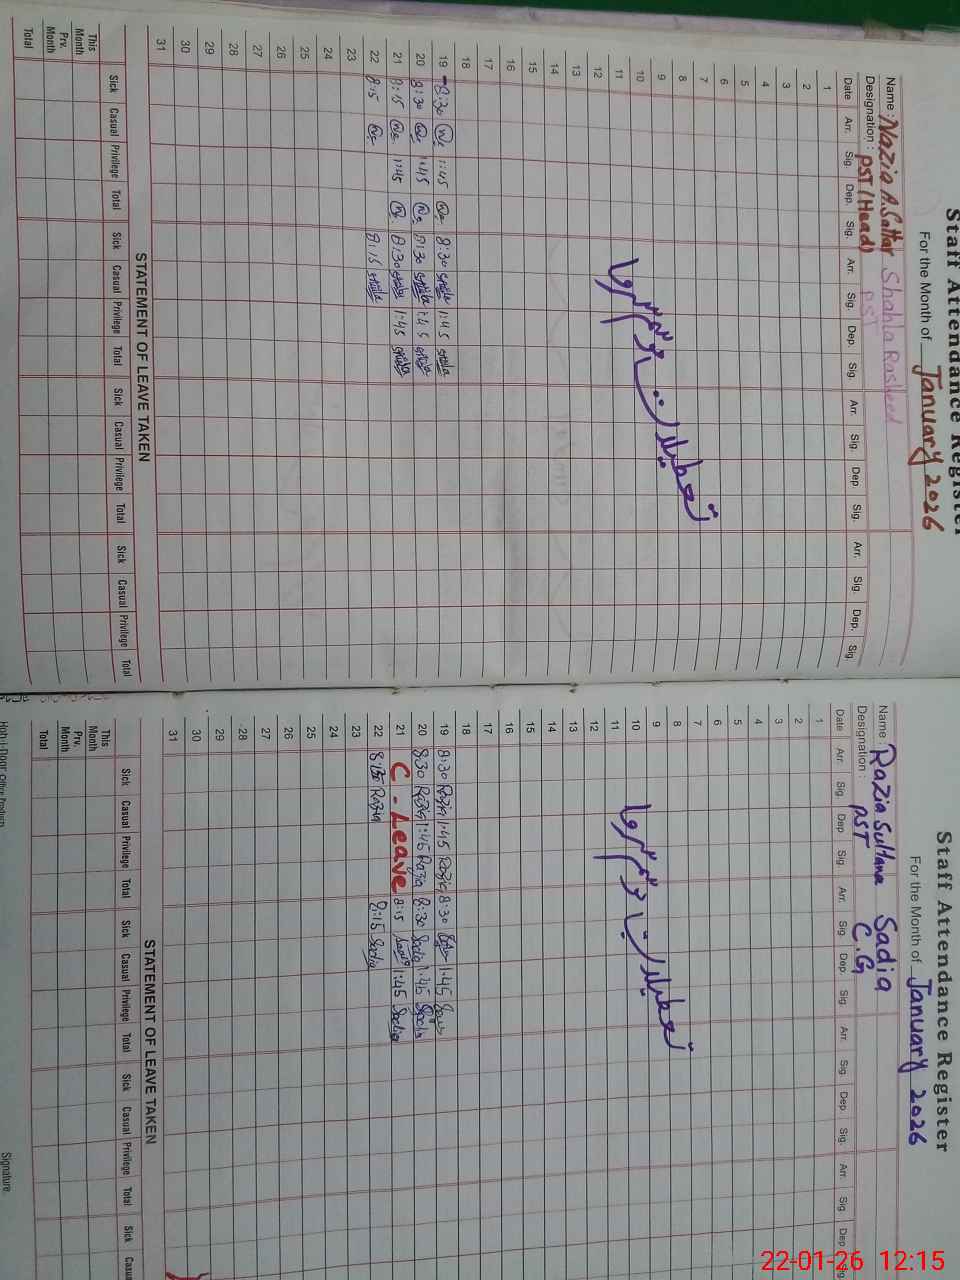 Staff Attendance Register
For the Month of January 2026
Name: Nazia A.Sattar Shahla Rasheed
Designation: PST (Head) PST
Date Arr. Sig. Dep. Sig. Arr. Sig. Dep. Sig. Arr. Sig. Dep Sig. Arr. Sig. Dep. Sig
1
2
3
4
5
6
7
8
9
10
11
12
13
14
15
16
17
18
تعطیلات موسم سرما
19 8:30 1:45 8:30 1:45
20 8:30 1:45 8:30 1:45
21 8:15 1:45 8:30 1:45
22 8:15 8:15
23
24
25
26
27
28
29
30
31
STATEMENT OF LEAVE TAKEN
Sick Casual Privilege Total Sick Casual Privilege Total Sick Casual Privilege Total Sick Casual Privilege Total
This Month
Prv. Month
Total
Staff Attendance Register
For the Month of January 2026
Name: Razia Sultana Sadia
Designation: PST C.G
Date Arr. Sig. Dep Sig. Arr. Sig. Dep. Sig. Arr. Sig. Dep Sig. Arr. Sig. Dep
1
2
3
4
5
6
7
8
9
10
11
12
13
14
15
16
17
18
تعطیلات موسم سرما
19 8:30 Razia 1:45 Razia 8:30 1:45
20 8:30 Razia 1:45 Razia 8:30 Sadia 1:45 Sadia
21 C-Leave 8:15 Sadia 1:45 Sadia
22 Razia 8:15 Sadia
23
24
25
26
27
28
29
30
31
STATEMENT OF LEAVE TAKEN
Sick Casual Privilege Total Sick Casual Privilege Total Sick Casual Privilege Total Sick
This Month
Prv. Month
Total
Signature.
22-01-26 12:15